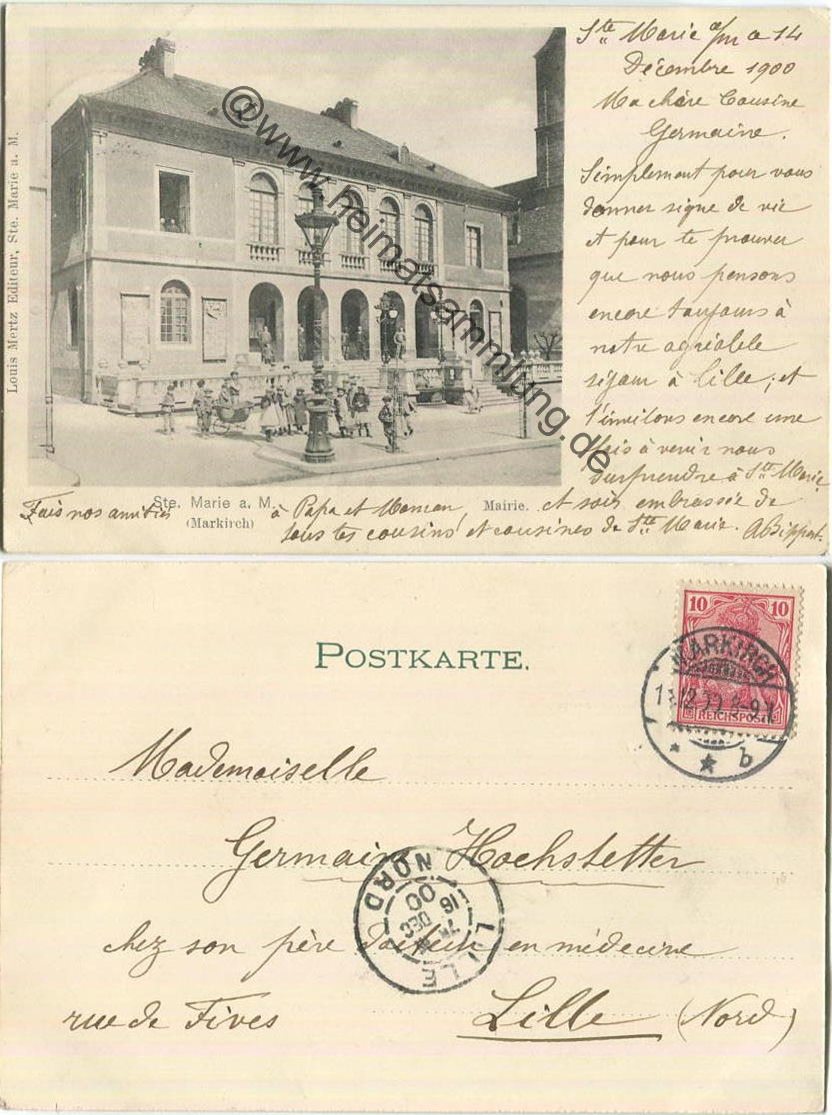 Louis Mertz Editeur, Ste. Marie a. M.
Ste Marie a/m a 14
Décembre 1900
Ma chère Cousine
Germaine.
Simplement pour vous
donner signe de vie
et pour te prouver
que nous pensons
encore toujours à
notre agréable
séjour à Lille, et
t'invitons encore une
fois à venir nous
surprendre à Ste Marie,
Ste. Marie a. M.
(Markirch)
Mairie.
Fais nos amitiés à Papa et Maman, et sois embrassée de
tous tes cousins et cousines de Ste Marie.
© www.heimatsammlung.de
POSTKARTE.
10 10
REICHSPOST
MARKIRCH
12.00 8-9
* * b
Mademoiselle
Germaine Hochstetter
chez son père Docteur en médecine
rue de Fives Lille (Nord)
LILLE
NORD
16
DEC
00